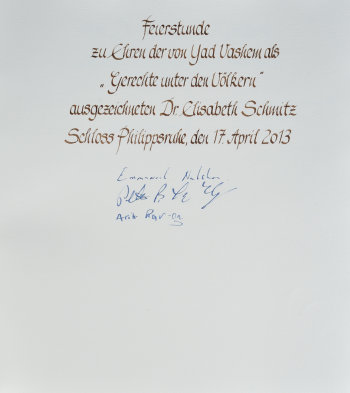 Feierstunde
zu Ehren der von Yad Vashem als
„Gerechte unter den Völkern“
ausgezeichneten Dr. Elisabeth Schmitz
Schloss Philippsruhe, den 17. April 2013
Emmanuel